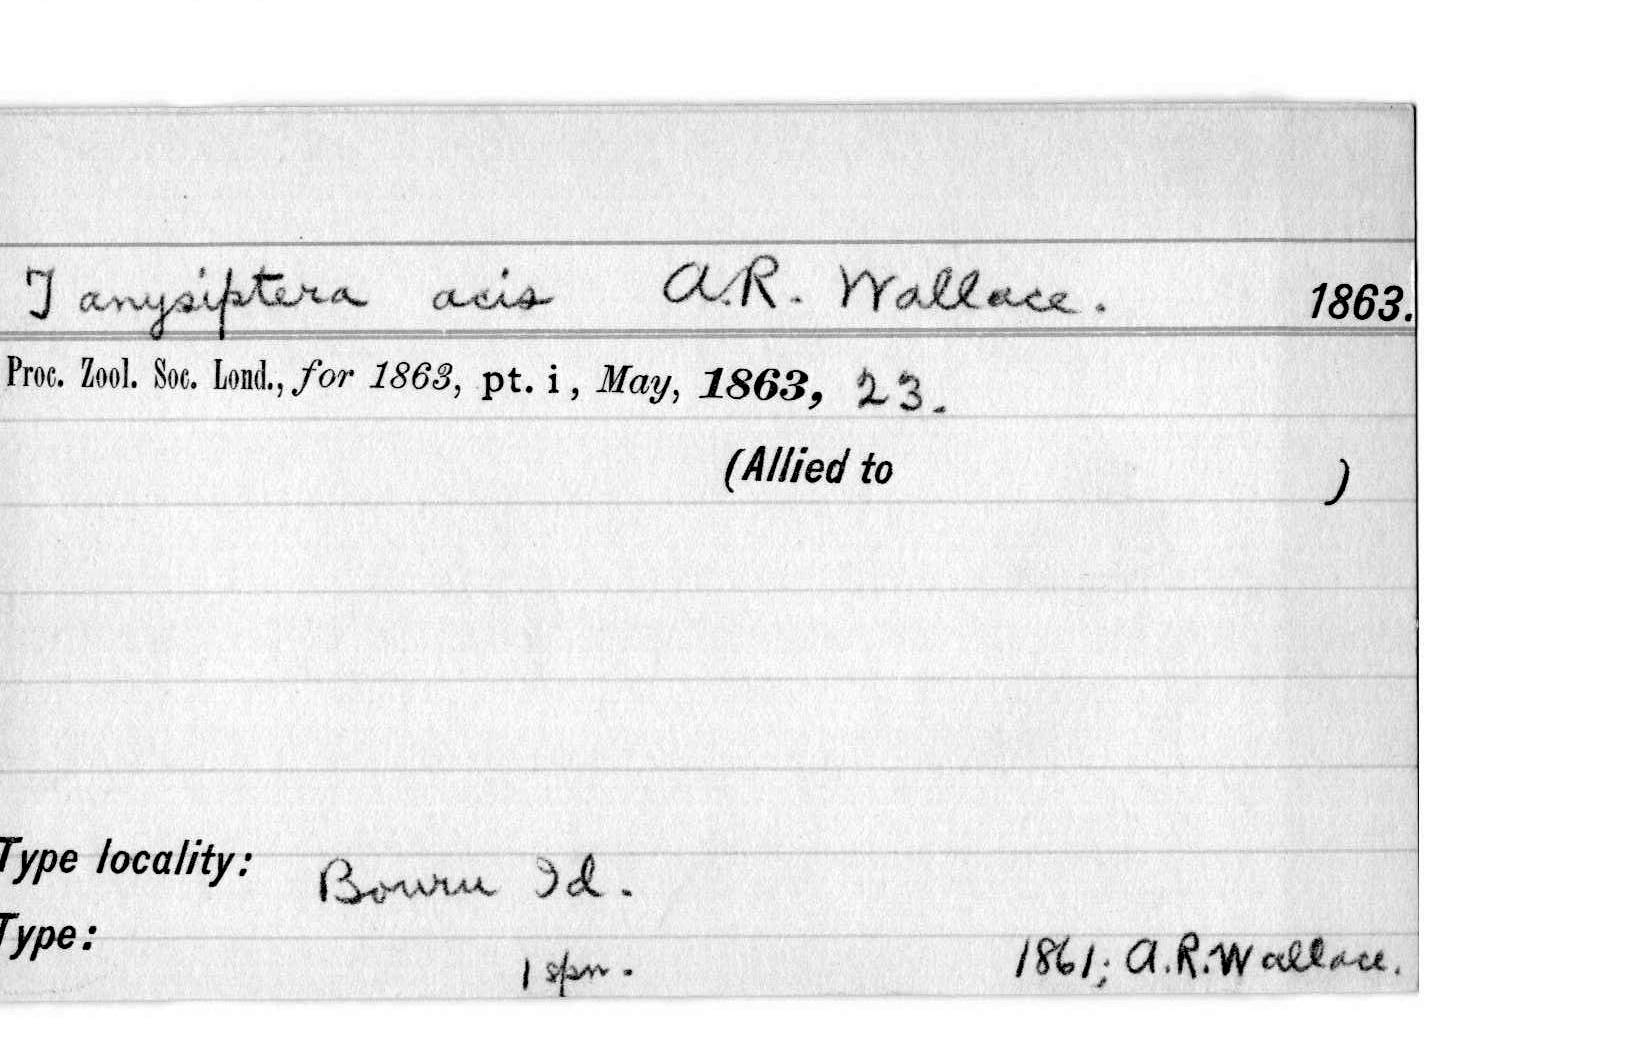 Tanysiptera acis A.R. Wallace. 1863.
Proc. Zool. Soc. Lond., for 1863, pt. i, May, 1863, 23.
(Allied to )
Type locality: Bouru Id.
Type:
1 spm. 1861; A.R. Wallace.